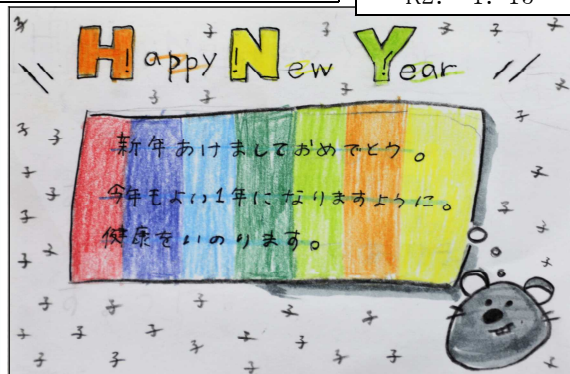 Happy New Year
新年あけましておめでとう。
今年もよい1年になりますように。
健康をいのります。